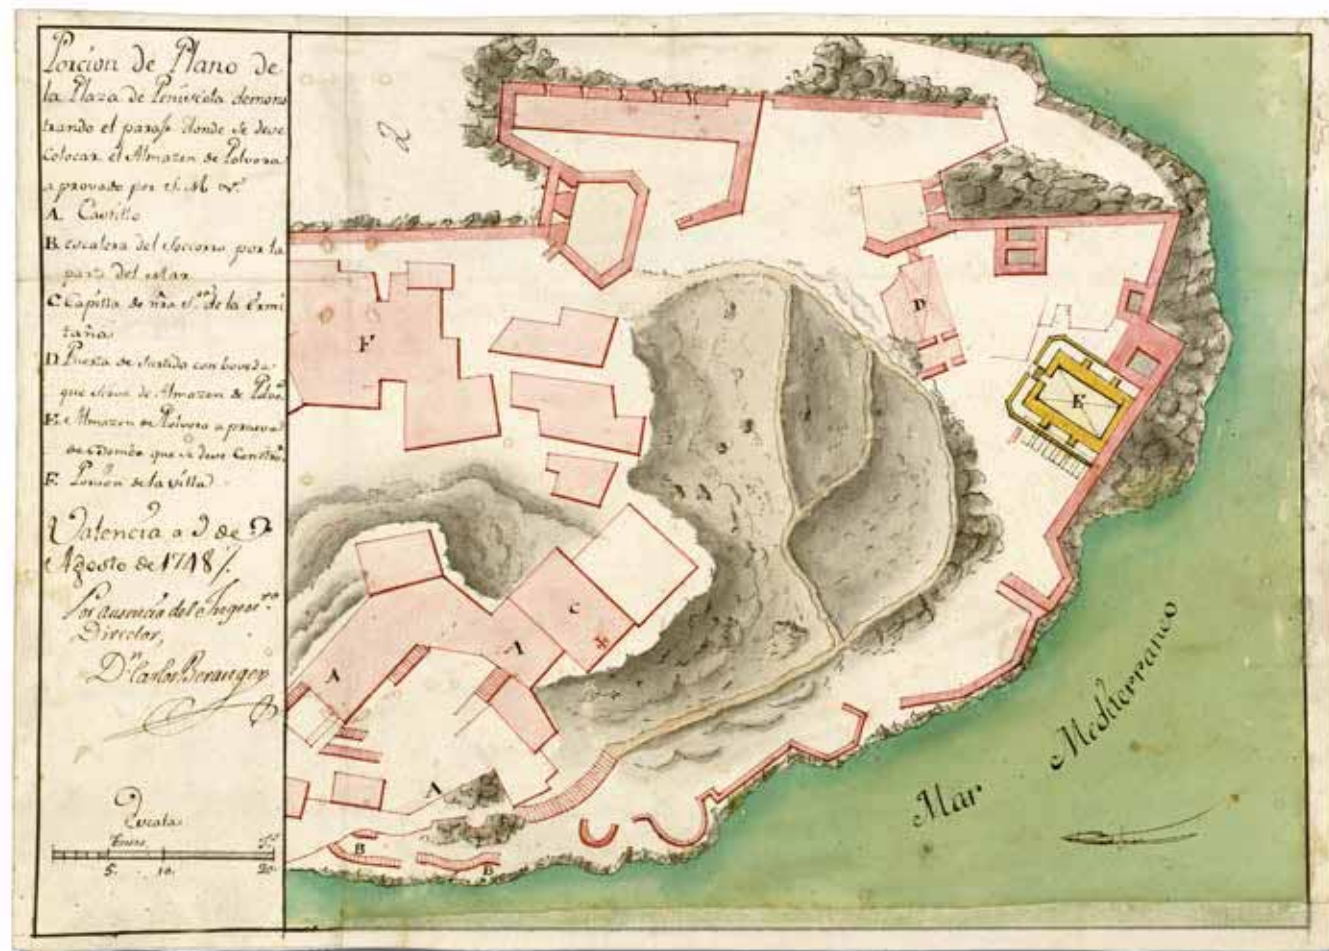 Porcion de Plano de
la Plaza de Peniscola demons
trando el parase donde se deve
Colocar el Almazen de Polvora
aprovado por S. M.
A. Castillo
B. escalera del Socorro por la
parte del Mar
C. Capilla de nra. Sra. de la Ermi
taña
D. Puerta de Surtida con boveda
que sirve de Almazen de Polvo.
E. Almazen de Polvora a prueva
de Bomba que se deve Constru.
F. Porcion de la villa
Valencia a 9 de
Agosto de 1748
Por ausencia del Ingenro.
Director,
Dn. Carlos Beranger
Escala
5. 10. 20.
F
D
E
C
A
A
A
B
B
Mar Mediterraneo